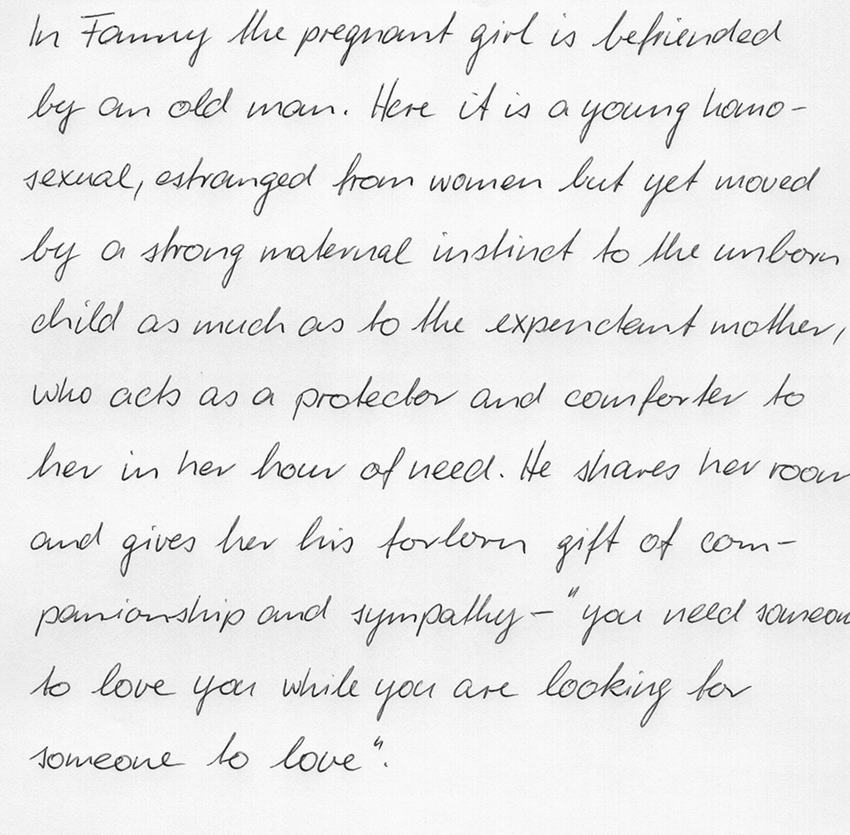 In Fanny the pregnant girl is befriended
by an old man. Here it is a young homo-
sexual, estranged from women but yet moved
by a strong maternal instinct to the unborn
child as much as to the expenctant mother,
who acts as a protector and comforter to
her in her hour of need. He shares her room
and gives her his forlorn gift of com-
panionship and sympathy - "you need someon
to love you while you are looking for
someone to love".